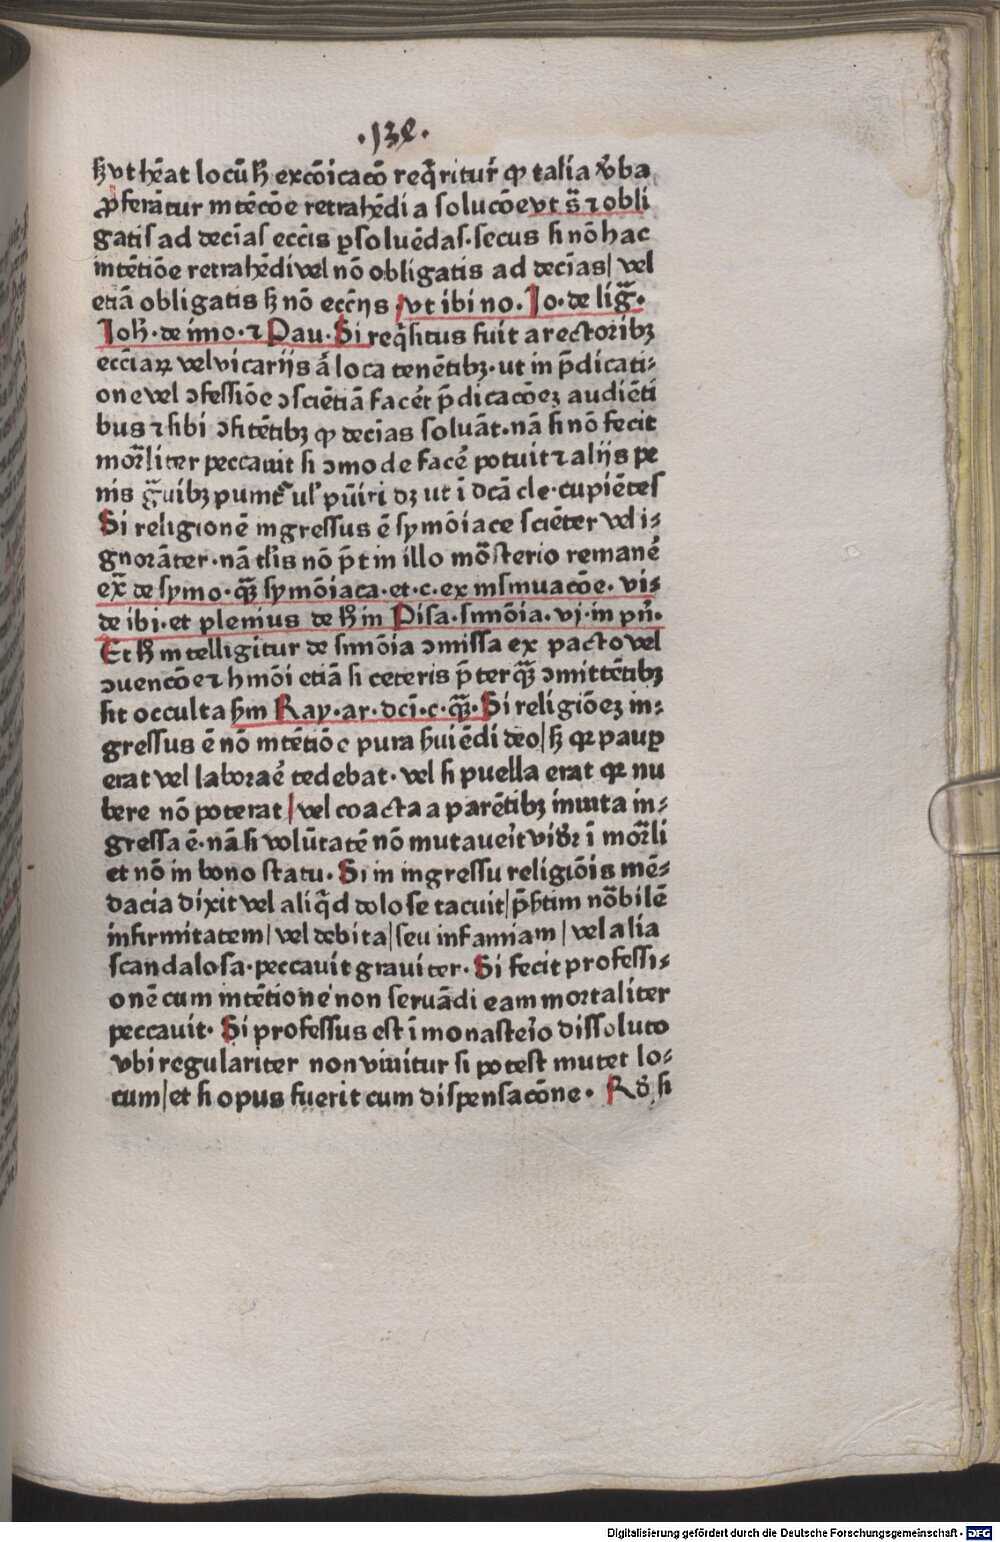 ·138·
ꝫ vt hēat locū ꝫ excōicacō req̄ritur̄ ꝙ talia v̄ba
ꝓferāt̄ur intēcōe retrahēdi a solucōe vt s̄ ⁊ obli
gatis ad decīas eccīs ꝑsoluēdas·secus si nō hac
intētiōe retrahēdi vel nō obligatis ad decīas/ vel
etiā obligatis ꝫ nō eccīis /vt ibi no. Jo·de lig̅·
Joh̄·de imo·⁊ Pau·Si req̄situs fuit a rectoribꝫ
eccīaꝝ vel vicarijs a̅ loca tenētibꝫ·ut in p̄dicati-
one vel ɔfessiōe ɔsciētiā facēt p̄dicacōeꝫ audiēti
bus ⁊ sibi ɔfitētibꝫ ꝙ decīas soluāt·nā si nō fecit
mor̄liter peccauit si ɔmode facē potuit ⁊ alijs pe
nis g̅uibꝫ puniēt̄ ul' pūiri dꝫ ut ī dcā cle·cupiētes
Si religionē ingressus ē symōiace sciēter vel i-
gnorāter·nā t̄lis nō p̄t in illo mōsterio remanē
ex̄ de symo·qꝫ̄ symōiaca·et·c·ex insinuacōe·vi-
de ibi·et plenius de ꝫ in Pisa·simōia·vj·in pn̄·
Et ꝫ intelligitur de simōia ɔmissa ex pacto vel
ɔuencōe ⁊ hmōi etiā si ceteris p̄terqꝫ̄ ɔmittētibꝫ
sit occulta s̄m Ray·ar·dcī·c·qꝫ̄·Si religiōeꝫ in-
gressus ē nō intētiōe pura s̄uiēdi deo/ꝫ qꝛ paup̄
erat vel laboraē tedebat·vel si puella erat qꝛ nu
bere nō poterat/vel coacta a parētibꝫ inuita in-
gressa ē·nā si volūtatē nō mutaueīt vidr̄ ī mor̄li
et nō in bono statu·Si in ingressu religiōis mē-
dacia dixit vel aliq̄d dolose tacuit/p̄sertim nōbilē
infirmitatem/vel debita/seu infamiam/vel alia
scandalosa·peccauit grauiter·Si fecit professi-
onē cum intētione non seruādi eam mortaliter
peccauit·Si professus est ī monasteīo dissoluto
vbi regulariter non viuitur si potest mutet lo-
cum/et si opus fuerit cum dispensacōne·Rō si
Digitalisierung gefördert durch die Deutsche Forschungsgemeinschaft · DFG